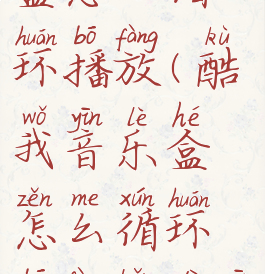 huán bō fàng kù
环播放(酷
wǒ yīn lè hé
我音乐盒
zěn me xún huán
怎么循环